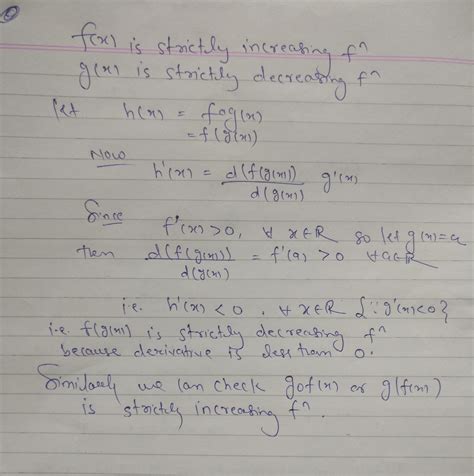 f(x) is strictly increasing fⁿ
g(x) is strictly decreasing fⁿ
let h(x) = fog(x)
= f(g(x))
Now
h'(x) = d(f(g(x)))/d(g(x)) g'(x)
Since
f'(x)>0, ∀ x∈R so let g(x)=a
then d(f(g(x)))/d(g(x)) = f'(a) >0 ∀a∈R
i.e. h'(x) < 0, ∀ x∈R {∵ g'(x)<0}
i.e. f(g(x)) is strictly decreasing fⁿ
because derivative is less than 0.
Similarly we can check gof(x) or g(f(x))
is strictly increasing fⁿ.